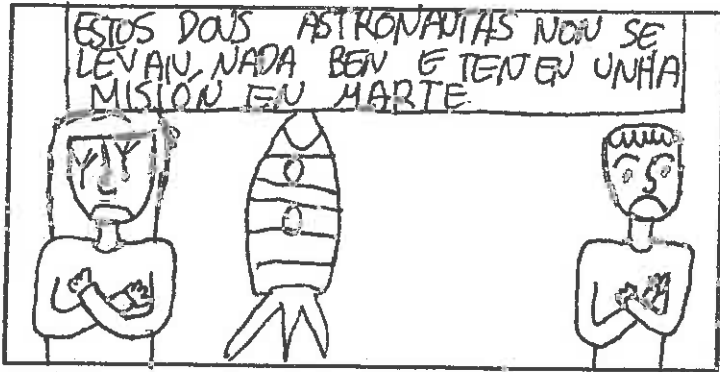 ESTOS DOUS ASTRONAUTAS NON SE
LEVAN NADA BEN E TEÑEN UNHA
MISIÓN EN MARTE